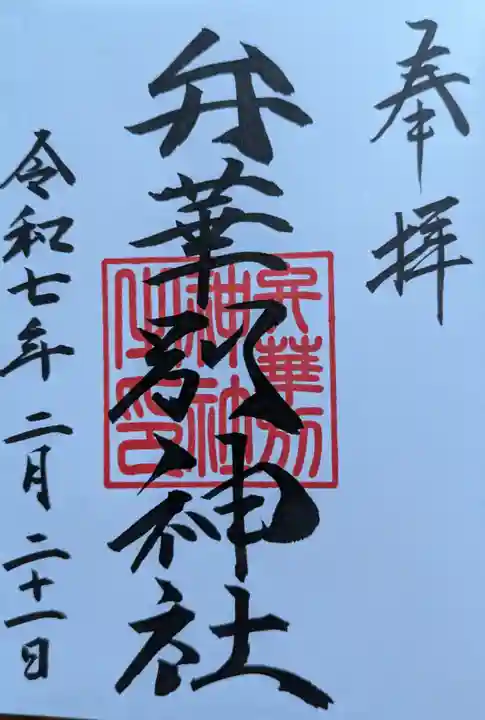 奉拝
弁華別神社
弁華別
神社
之印
令和七年二月二十一日